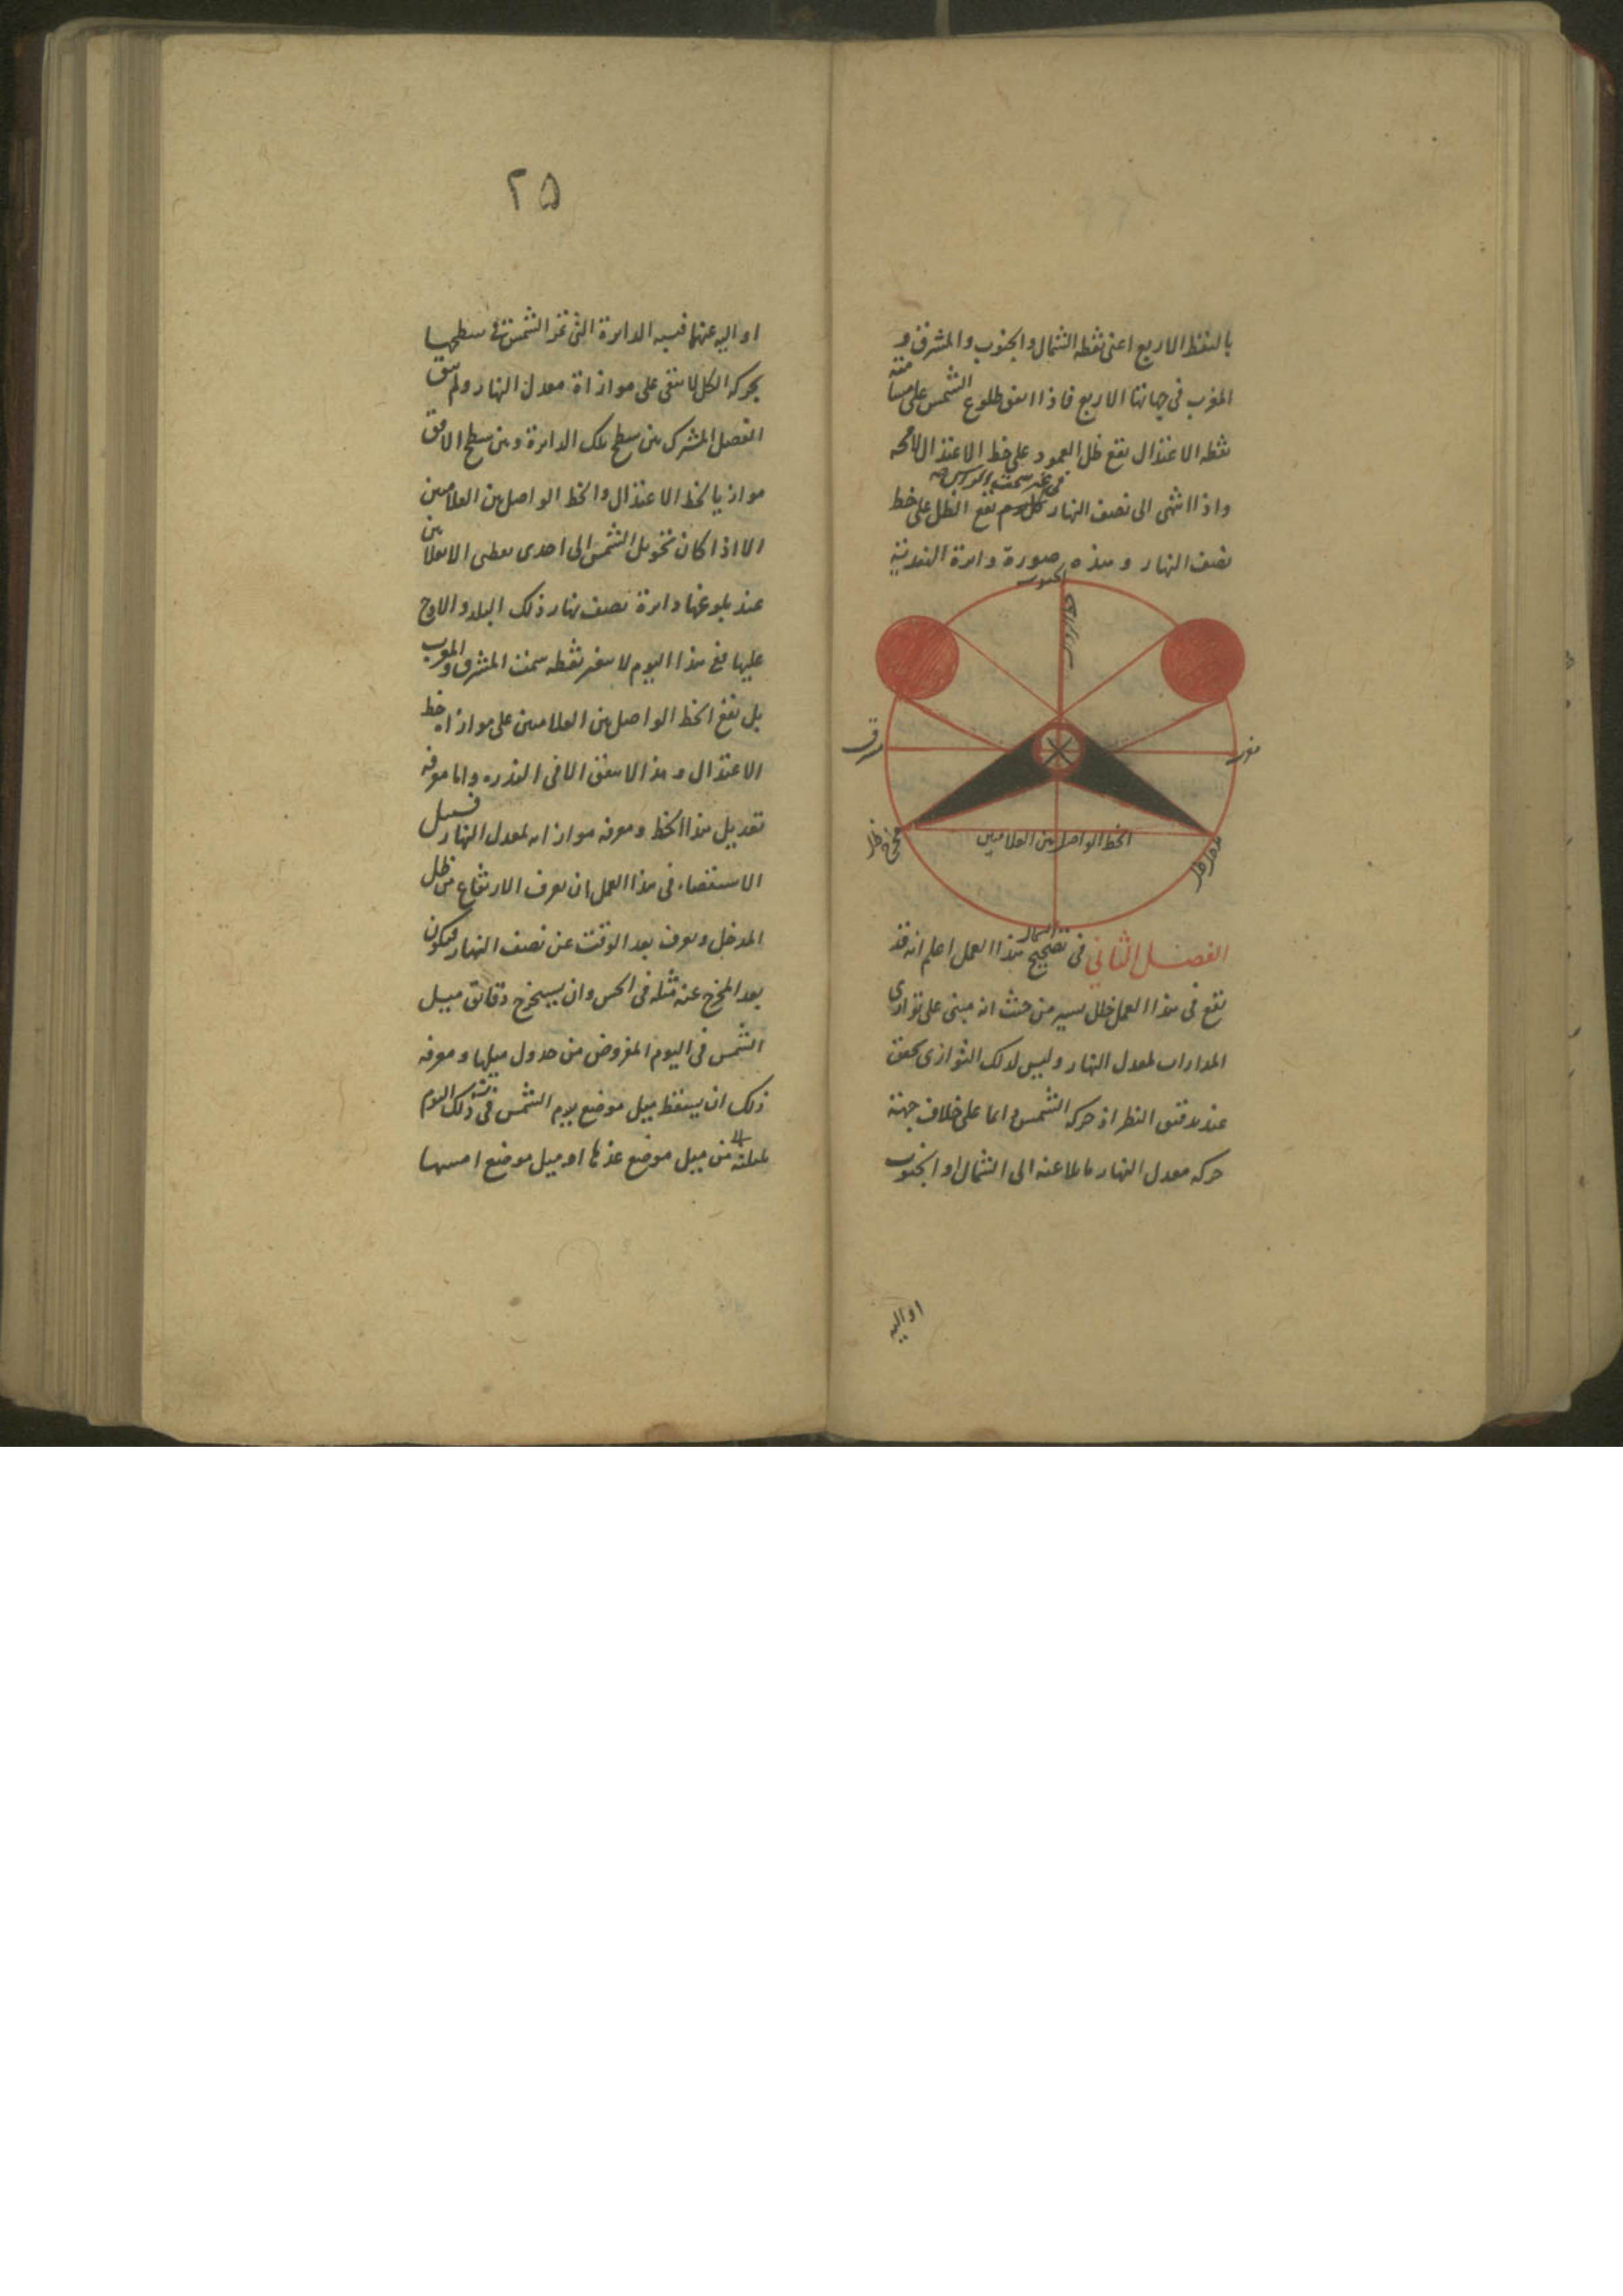 بالنقط الاربع اعنى نقطة الشمال والجنوب والمشرق و
المغرب فى جهاتنا الاربع فاذا اتفق طلوع الشمس على مسامتة
نقطه الاعتدال يقع ظل العمود على خط الاعتدال لامحه
واذا انتهى الى نصف النهار فى غير سمت الراس يقع الظل على خط
نصف النهار وهذه صورة دايرة الهندية
الجنوب
مشرق
مغرب
الخط الواصل بين العلامتين
مخرج ظل
مدخل ظل
الشمال
الفصل الثانى فى تصحيح هذا العمل اعلم انه قد
يقع فى هذا العمل خلل يسير من حيث انه مبنى على توازى
المدارات لمعدل النهار وليس لذلك التوازى تحقق
عند تدقيق النظر اذ حركه الشمس دائما على خلاف جهة
حركه معدل النهار مايلا عنه الى الشمال او الجنوب
او اليه
٢٥
او اليه عنها فيه الدايرة التى تمر الشمس فى سطحها
بحركه الكل لا يبقى على موازاة معدل النهار ولم يبق
الفصل المشترك بين سطح تلك الدايرة وبين سطح الافق
موازيا لخط الاعتدال والخط الواصل بين العلامتين
الا اذا كان تحويل الشمس الى احدى نقطتى الانقلابين
عند بلوغها دايرة نصف نهار ذلك البلد والاوج
عليها ففى هذا اليوم لا يتغير نقطه سمت المشرق والمغرب
بل يقع الخط الواصل بين العلامتين على موازاة خط
الاعتدال وهذا لا يتفق الا فى الندره واما معرفه
تعديل هذا الخط ومعرفه موازاته لمعدل النهار فسبيل
الاستقصاء فى هذا العمل ان يعرف الارتفاع من ظل
المدخل ويعرف بعد الوقت عن نصف النهار فيكون
بعد المخرج عنه مثله فى الحس وان يستخرج دقائق ميل
الشمس فى اليوم المفروض من جدول ميلها ومعرفه
ذلك ان يسقط ميل موضع يوم الشمس فى ذلك اليوم
من ميل موضع غدها او ميل موضع امسها